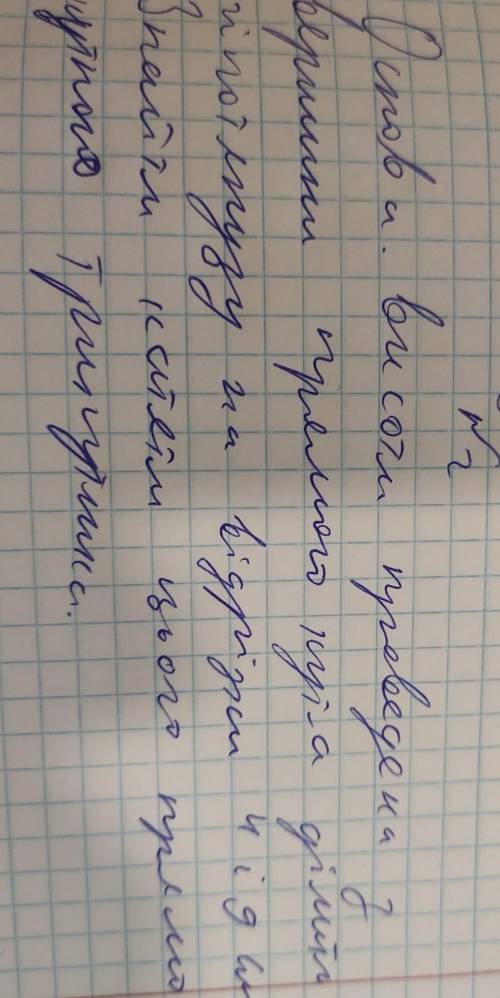 №2
Основа висоти проведена з
вершини прямого кута ділить
гіпотенузу на відрізки 4 і 9 см
Знайти катети цього прямо
кутного трикутника.